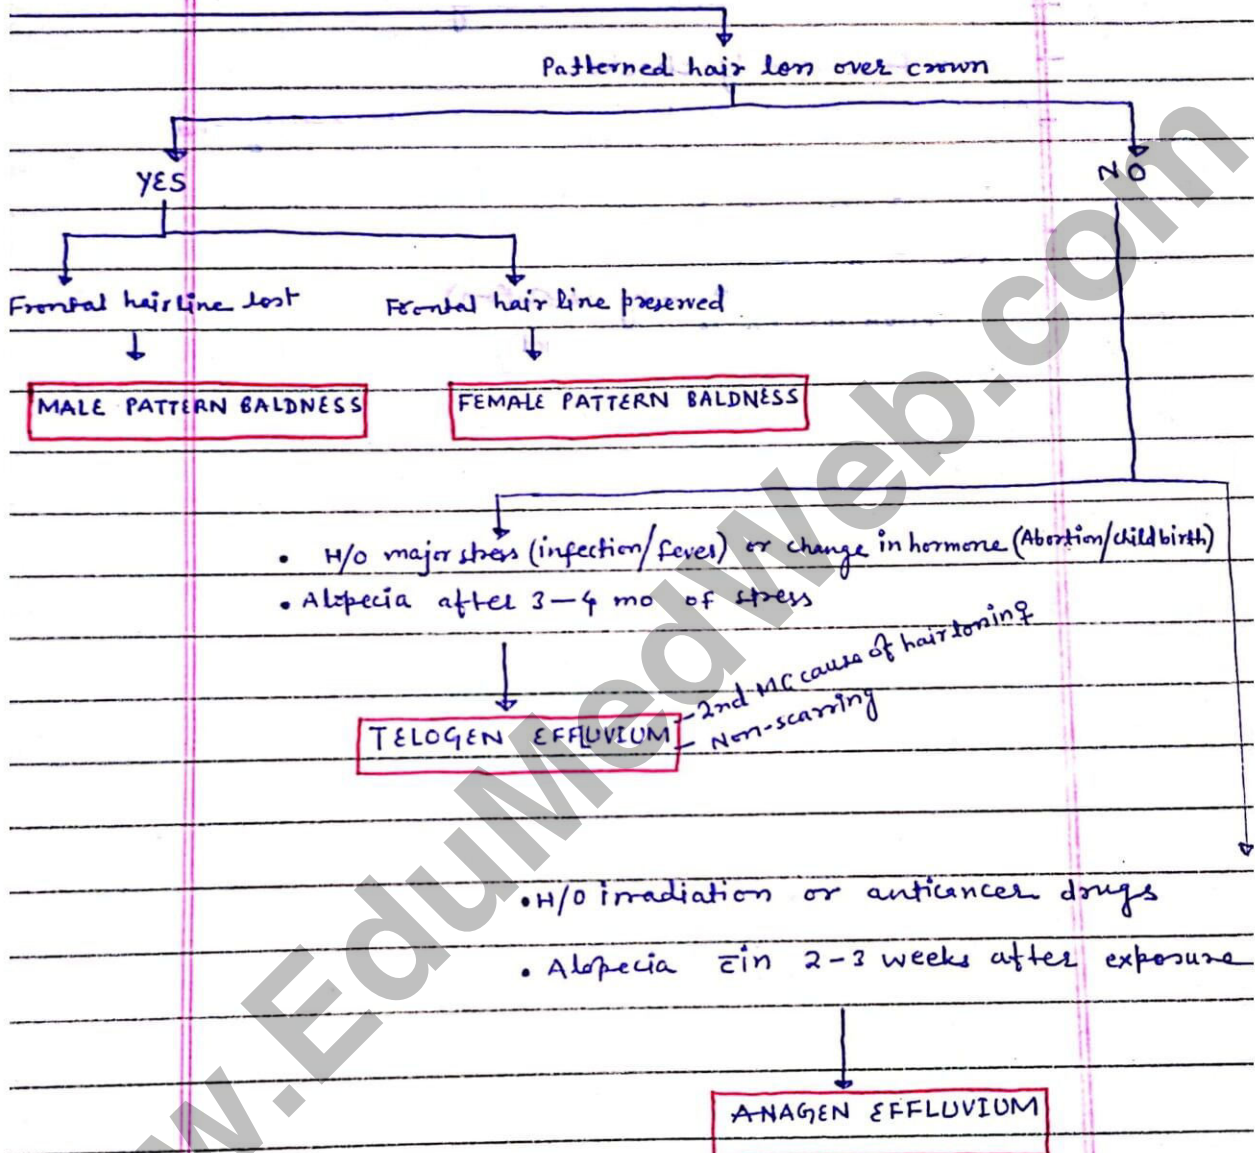 Patterned hair loss over crown
YES
NO
Frontal hairline lost
Frontal hair line preserved
MALE PATTERN BALDNESS
FEMALE PATTERN BALDNESS
• H/O major stress (infection/fever) or change in hormone (Abortion/childbirth)
• Alopecia after 3-4 mo of stress
TELOGEN EFFLUVIUM
- 2nd MC cause of hair loss in ♀
- Non-scarring
• H/O irradiation or anticancer drugs
• Alopecia c̄in 2-3 weeks after exposure
ANAGEN EFFLUVIUM
w.EduMedWeb.com